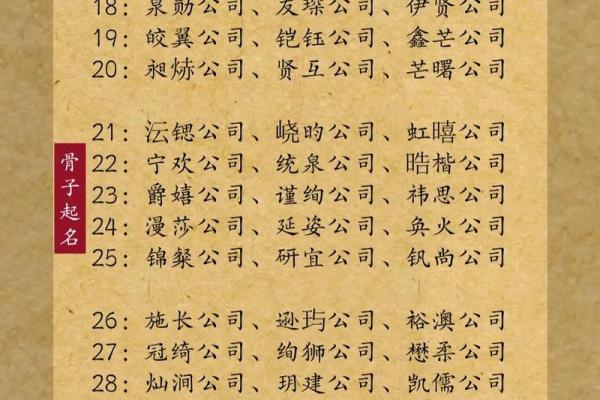 18：泉勋公司、友琛公司、伊贤公司
19：皎翼公司、铠钰公司、鑫芒公司
20：昶焃公司、贤互公司、芒曙公司
21：沄锶公司、峣昀公司、虹暿公司
22：宁欢公司、统泉公司、晧楷公司
23：爵嬉公司、谨绚公司、祎思公司
24：漫莎公司、延姿公司、奂火公司
25：锦粲公司、研宜公司、钒尚公司
26：施长公司、逊玙公司、裕澳公司
27：冠绮公司、绚狮公司、懋柔公司
28：灿涧公司、玥建公司、凯儒公司
骨子起名